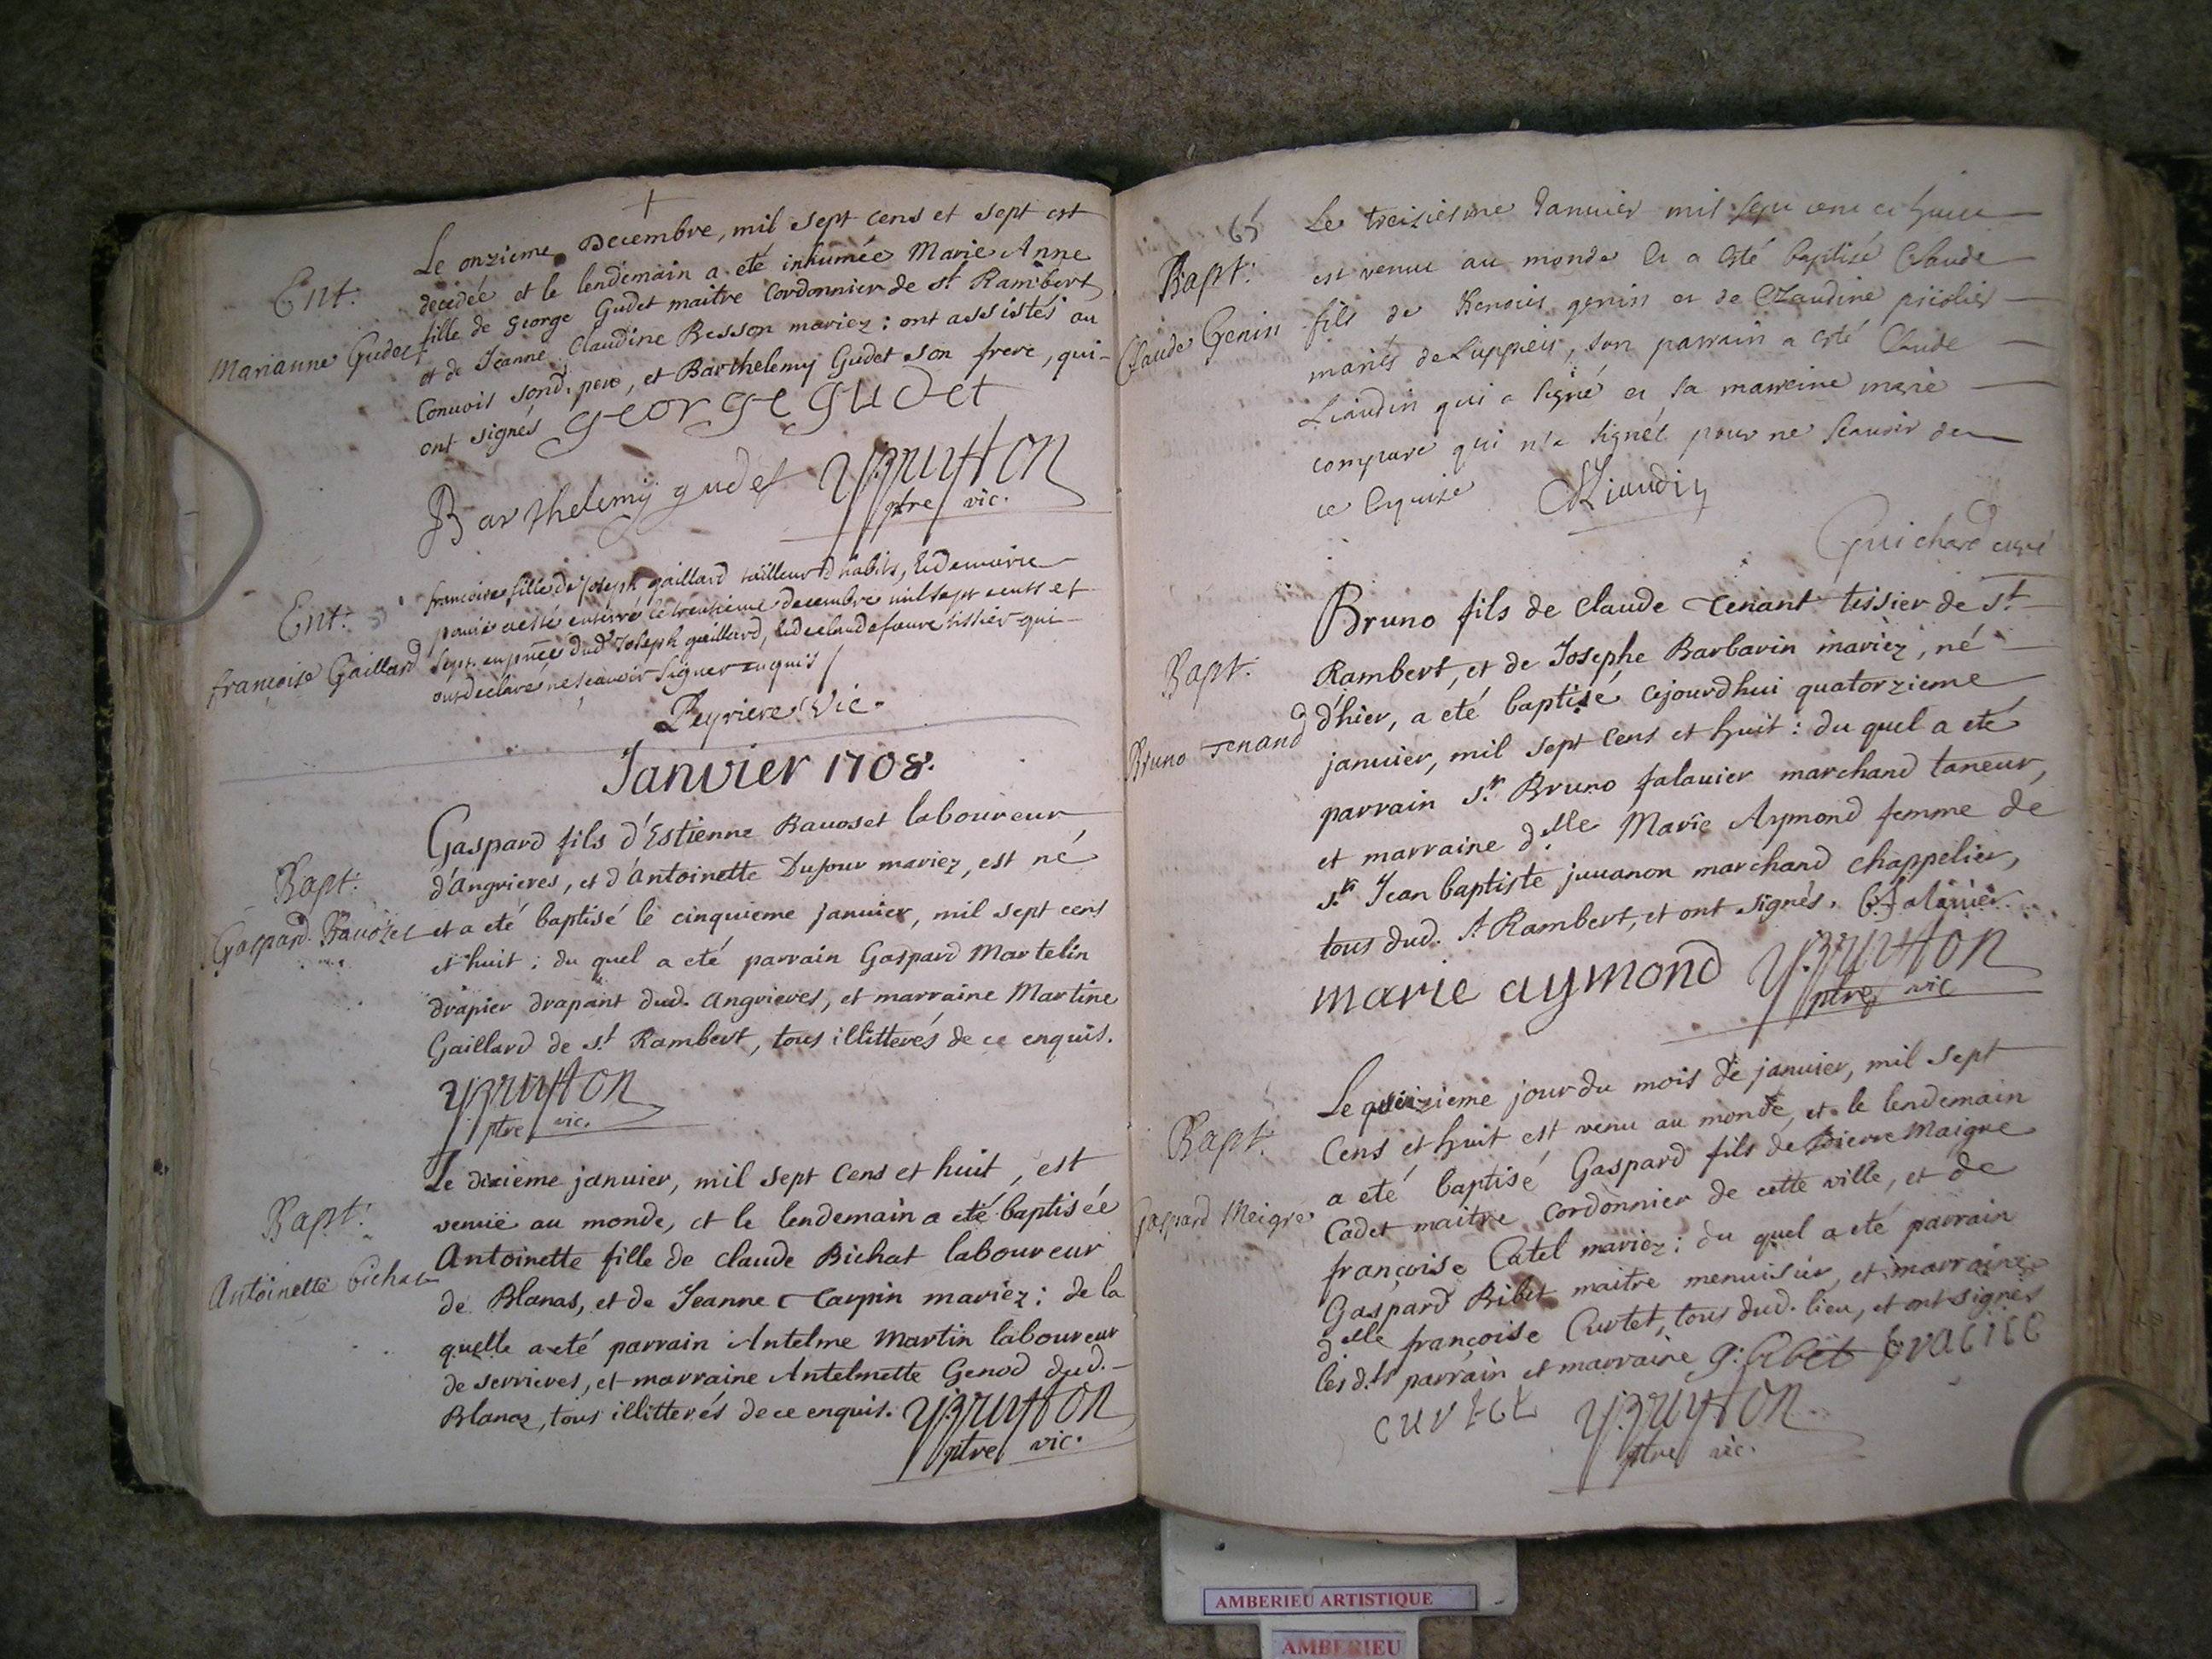 Ent.
Marianne Gudet
Le onzieme Decembre, mil sept cens et sept est
decedée et le lendemain a eté inhumée Marie Anne
fille de George Gudet maitre Cordonnier de St. Rambert
et de Jeanne Claudine Besson mariez : ont assistés au
Convois sond. pere, et Barthelemy Gudet son frere, qui
ont signés George Gudet
Barthelemy gudet
ptre vic.
Ent.
françoise Gaillard
francoise fille de Joseph gaillard tailleur d habits,
decembre mil sept cents et
sept en pnce dud Joseph gaillard, tissier qui
ont declaré ne sçavoir signer enquis
Peyriere Vic.
Janvier 1708.
Bapt.
Gaspard Bavozet
Gaspard fils d'Estienne Bavoset laboureur
d'Angrieres, et d'Antoinette Dufour mariez, est né
et a eté baptisé le cinquieme janvier, mil sept cens
et huit : du quel a eté parrain Gaspard Martelin
drapier drapant dud. Angrieres, et marraine Martine
Gaillard de St. Rambert, tous illitterés de ce enquis.
ptre vic.
Bapt.
Antoinette Bichat
Le dixieme janvier, mil sept cens et huit, est
venuë au monde, et le lendemain a eté baptisée
Antoinette fille de Claude Bichat laboureur
de Blanas, et de Jeanne Carpin mariez : de la
quelle a eté parrain Antelme Martin laboureur
de serrieres, et marraine Antelmette Genod dud.
Blanaz, tous illitterés de ce enquis.
ptre vic.
65
Bapt.
Claude Genin
Le treiziesme Janvier mil sept cent et huict
est venu au monde et a esté baptisé Claude
fils de Benoist genin et de Claudine
mariés de Luppieu, son parrain a esté Claude
Liaudin qui a signé et sa marreine marie
compare qui n'a signé pour ne scavoir de
ce enquise Cl Liaudin
Guichard curé
Bapt.
Bruno Tenand
Bruno fils de Claude Tenant tissier de St.
Rambert, et de Josephe Barbarin mariez, né
d'hier, a eté baptisé cejourdhui quatorzieme
janvier, mil sept cens et huit : du quel a eté
parrain Sr. Bruno falavier marchand taneur,
et marraine d.lle Marie Aymond femme de
Sr. Jean baptiste juvanon marchand chappelier,
tous dud. St. Rambert, et ont signés. B falavier
marie aymond
ptre vic
Bapt.
Gaspard Meigre
Le quinzieme jour du mois de janvier, mil sept
Cens et huit est venu au monde, et le lendemain
a eté baptisé Gaspard fils de Pierre Maigre
Cadet maitre Cordonnier de cette ville, et de
françoise Catel mariez : du quel a eté parrain
Gaspard Ribet maitre menuisier, et marraine
d.lle françoise Curtet, tous dud. lieu, et ont signés
les d.ts parrain et marraine
curtet
ptre vic.
AMBERIEU ARTISTIQUE
AMBERIEU